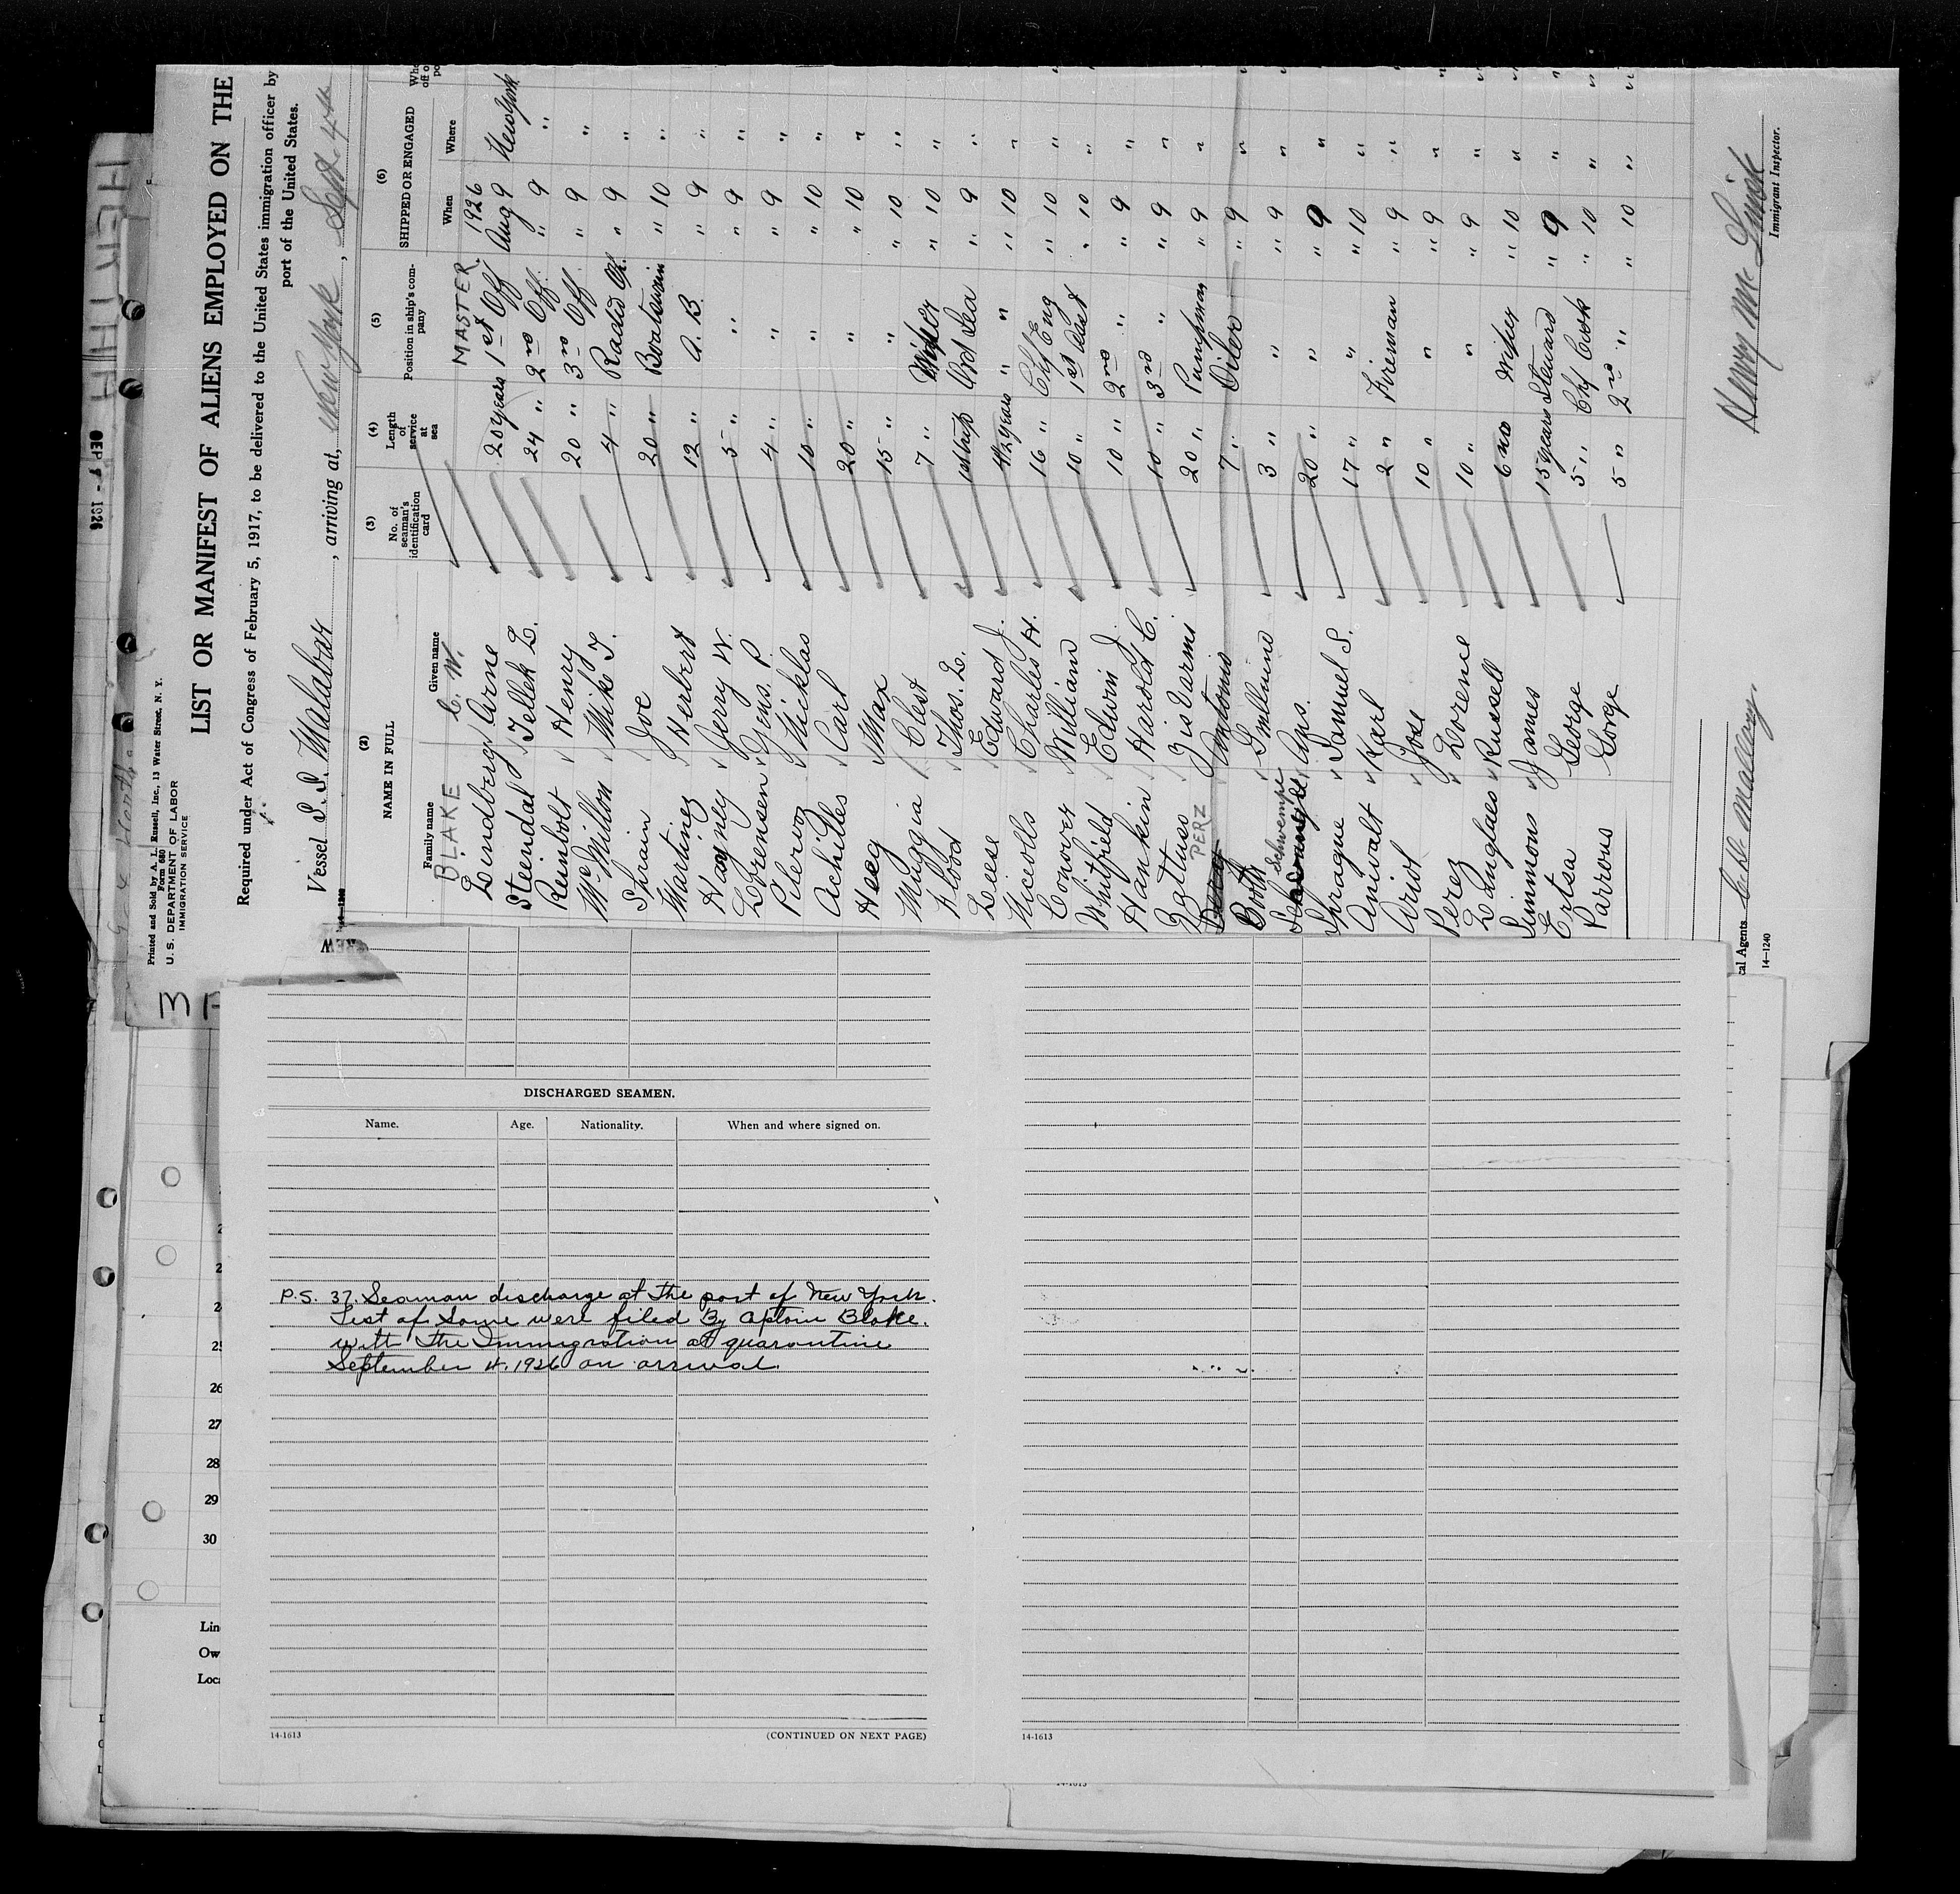 Printed and Sold by A. L. Russell, Inc., 13 Water Street, N. Y.
Form 680
U. S. DEPARTMENT OF LABOR
IMMIGRATION SERVICE
LIST OR MANIFEST OF ALIENS EMPLOYED ON THE
Required under Act of Congress of February 5, 1917, to be delivered to the United States immigration officer by
port of the United States.
Vessel S. S. Malabar, arriving at, New York, Sept 4th
(2) (3) (4) (5) (6)
NAME IN FULL No. of seaman's identification card Length of service at sea Position in ship's company SHIPPED OR ENGAGED
Family name Given name When Where
BLAKE C. W. MASTER 1926
Lindberg Arne 20 years 1st Off Aug 9 New York
Steindal Tellek L. 24 " 2nd Off. " 9 "
Reinbolt Henry 20 " 3rd Off. " 9 "
McMillon Mike T. 4 " Radio Op. " 9 "
Spain Joe 20 " Boatswain " 10 "
Martinez Herbert 12 " A. B. " 9 "
Hayney Jerry W. 5 " " " 9 "
Lorensen Jens. P. 4 " " " 9 "
Nicklas 10 " " " 10 "
Achilles Carl 20 " " " 10 "
Heeg Max 15 " " " 10 "
Muggia Clest 7 " Wiper " 10 "
Flood Thos. L. 1st trip Ord Sea " 9 "
Leese Edward J. 4½ years " " " 10 "
Nicolls Charles H. 16 " Chf Eng " 10 "
Conover William 10 " 1st Asst " 10 "
Whitfield Edwin J. 10 " 2nd " " 9 "
Hankin Harold C. 10 " 3rd " " 9 "
20 " Pumpman " 9 "
PERZ Antonio 7 " Oiler " 9 "
Booth 3 " " " 9 "
Schwempe Aug. 20 " " " 9 "
Sprague Samuel S. 17 " " " 10 "
Aniwalt Karl 2 " Fireman " 9 "
Jose 10 " " " 9 "
Perez Lorence 10 " " " 9 "
Langlaes Russell 6 mo Wiper " 10 "
Simmons James 15 years Steward " 9 "
Ertsa George 5 " Chf Cook " 10 "
Parrous George 5 " 2nd " " 10 "
Immigrant Inspector.
cal Agents C. D. Mallory.
14—1240
SEP 7 - 1926
CREW
DISCHARGED SEAMEN.
Name. Age. Nationality. When and where signed on.
P.S. 37. Seaman discharge at the port of New York.
List of Same were filed By Captain Blake.
with the Immigration at quarantine
September 4. 1926 on arrival.
14-1613 (CONTINUED ON NEXT PAGE)
14-1613
25
26
27
28
29
30
Lin
Ow
Loc